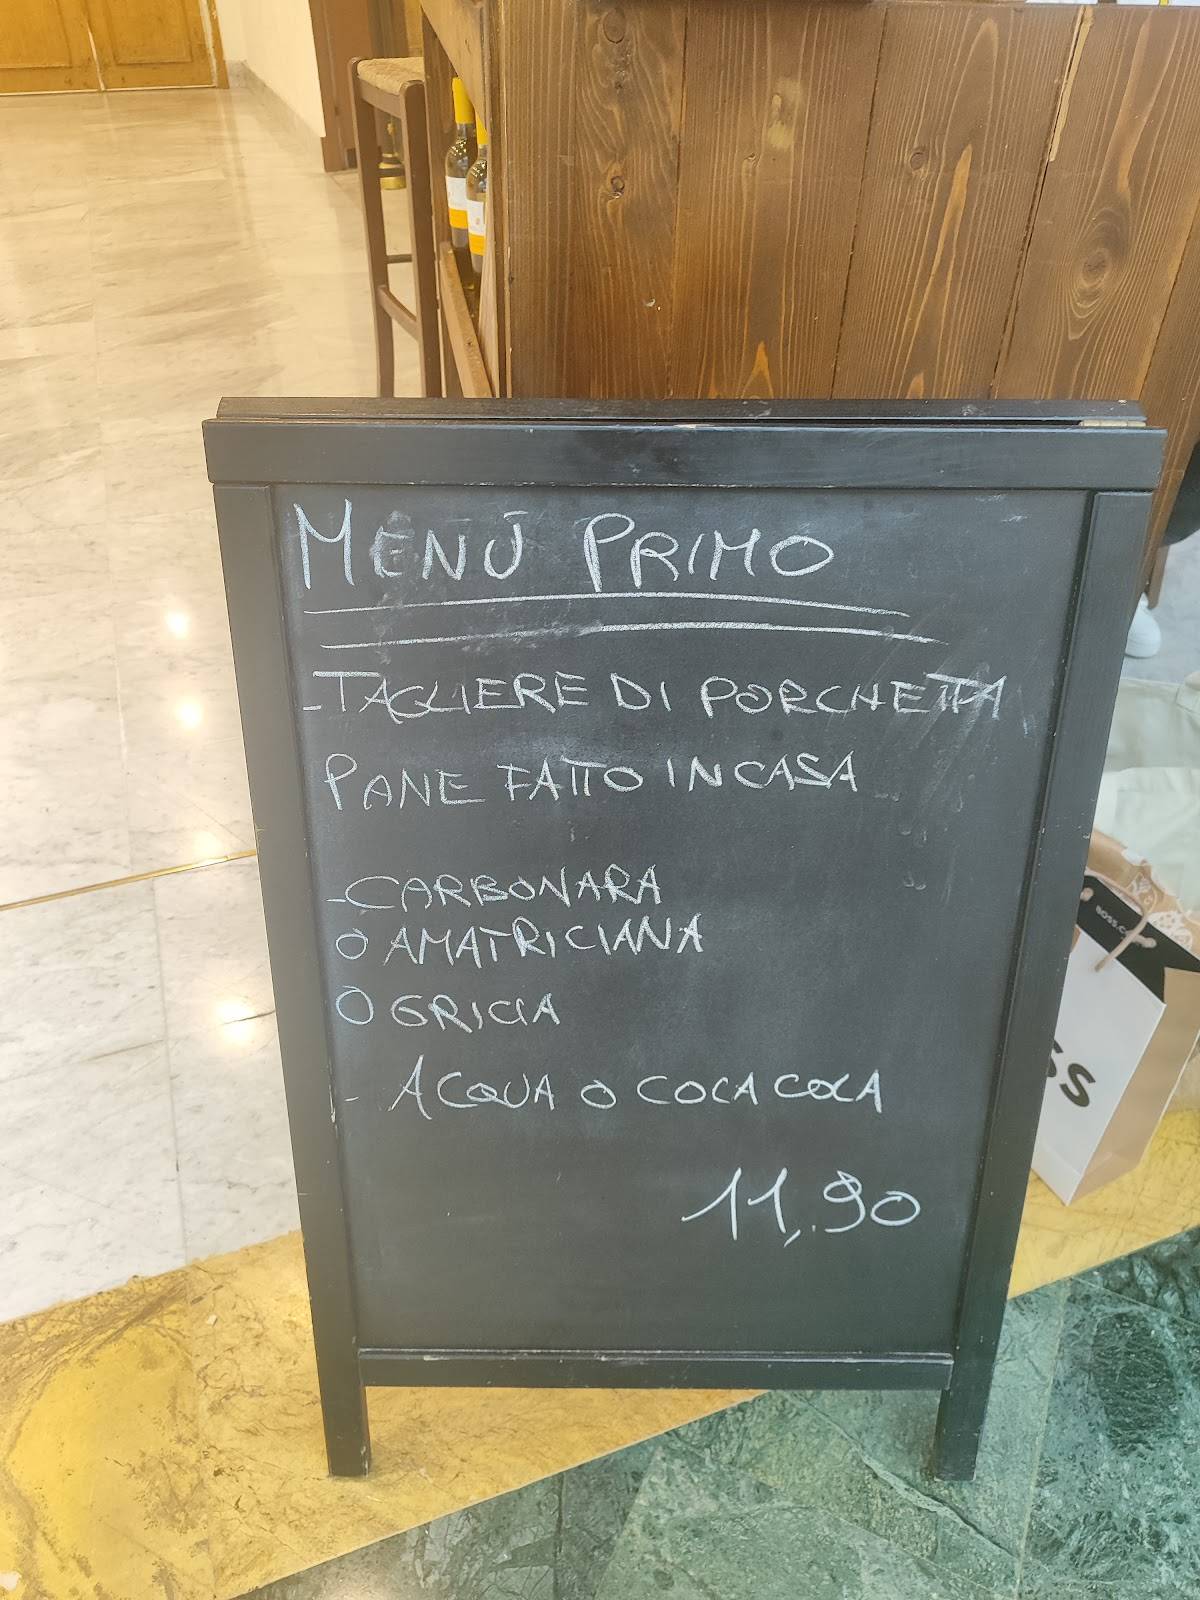 MENÙ PRIMO
-TAGLIERE DI PORCHETTA
PANE FATTO IN CASA
-CARBONARA
O AMATRICIANA
O GRICIA
- ACQUA O COCA COLA
11,90
BOSS.CO
SS